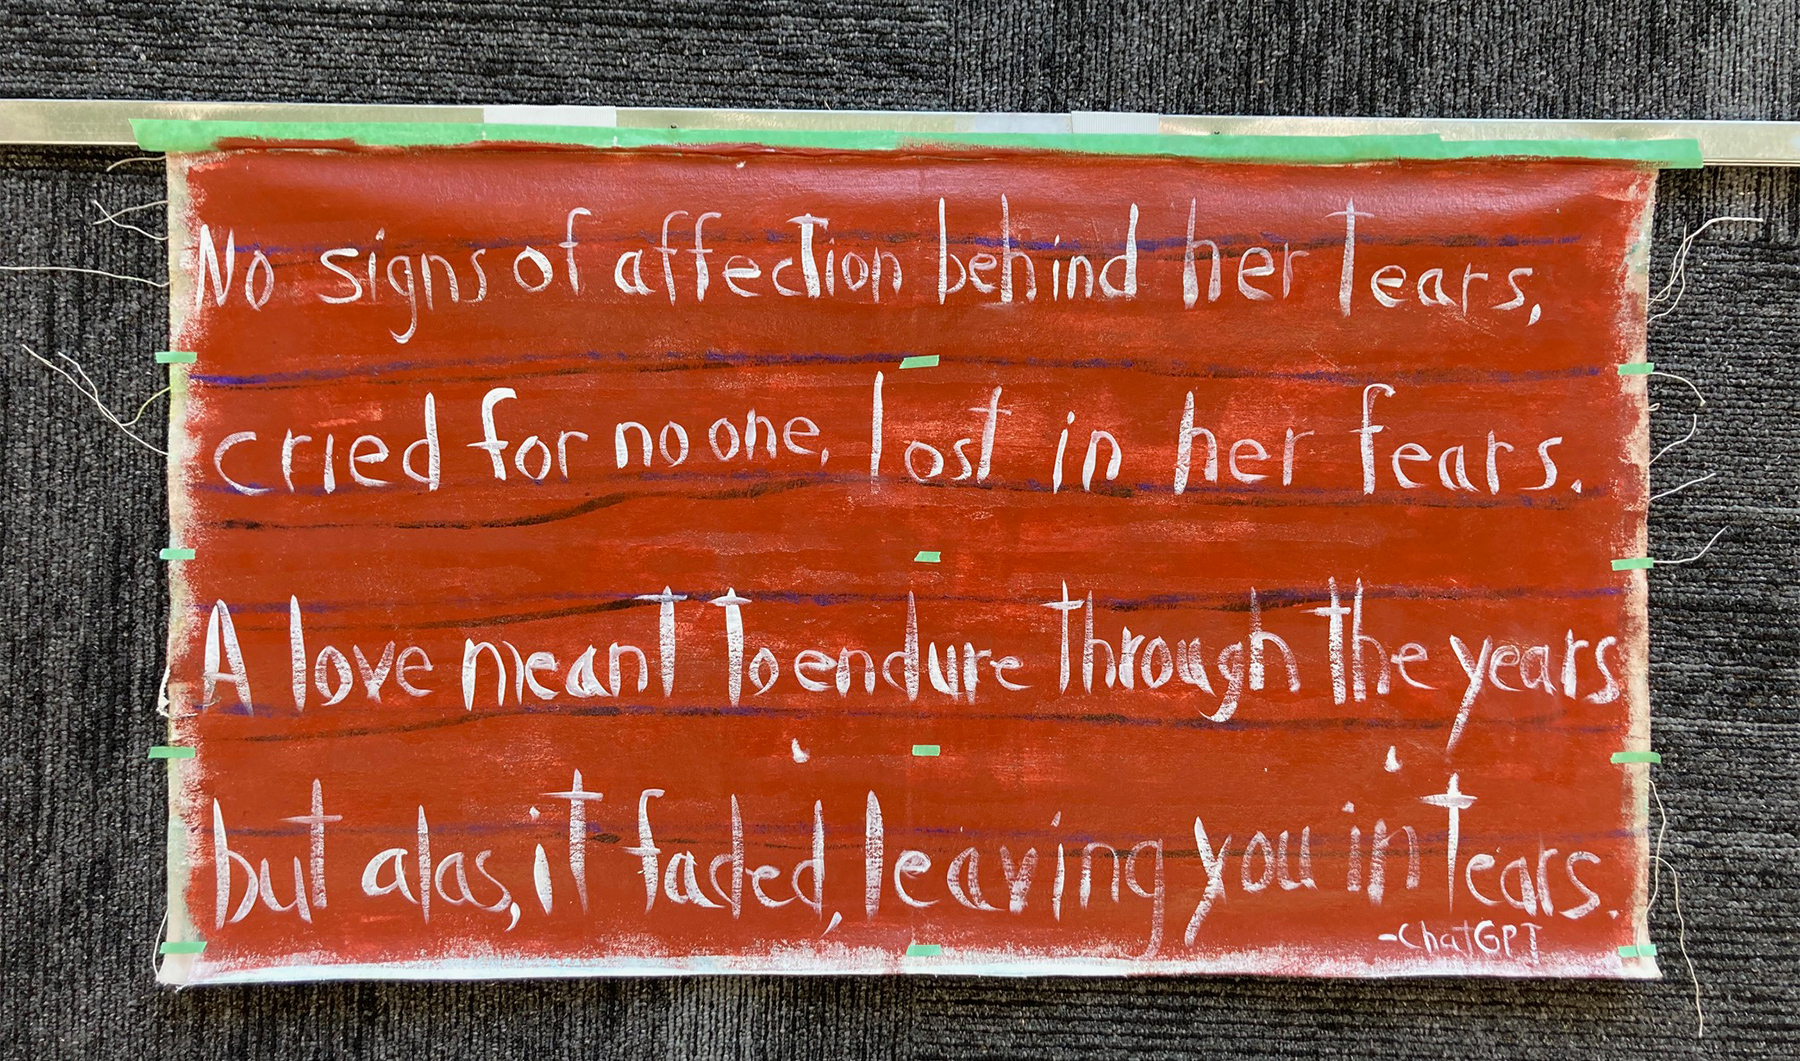 No signs of affection behind her tears,
cried for no one, lost in her fears.
A love meant to endure through the years
but alas, it faded, leaving you in tears.
-ChatGPT